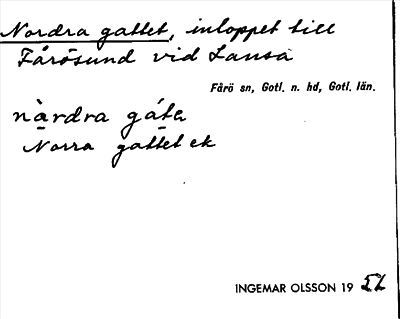 Nordra gattet, inloppet till
Fårösund vid Lansa
Fårö sn, Gotl. n. hd, Gotl. län.
nàrdra gáte
Norra gattet ek
INGEMAR OLSSON 19 52